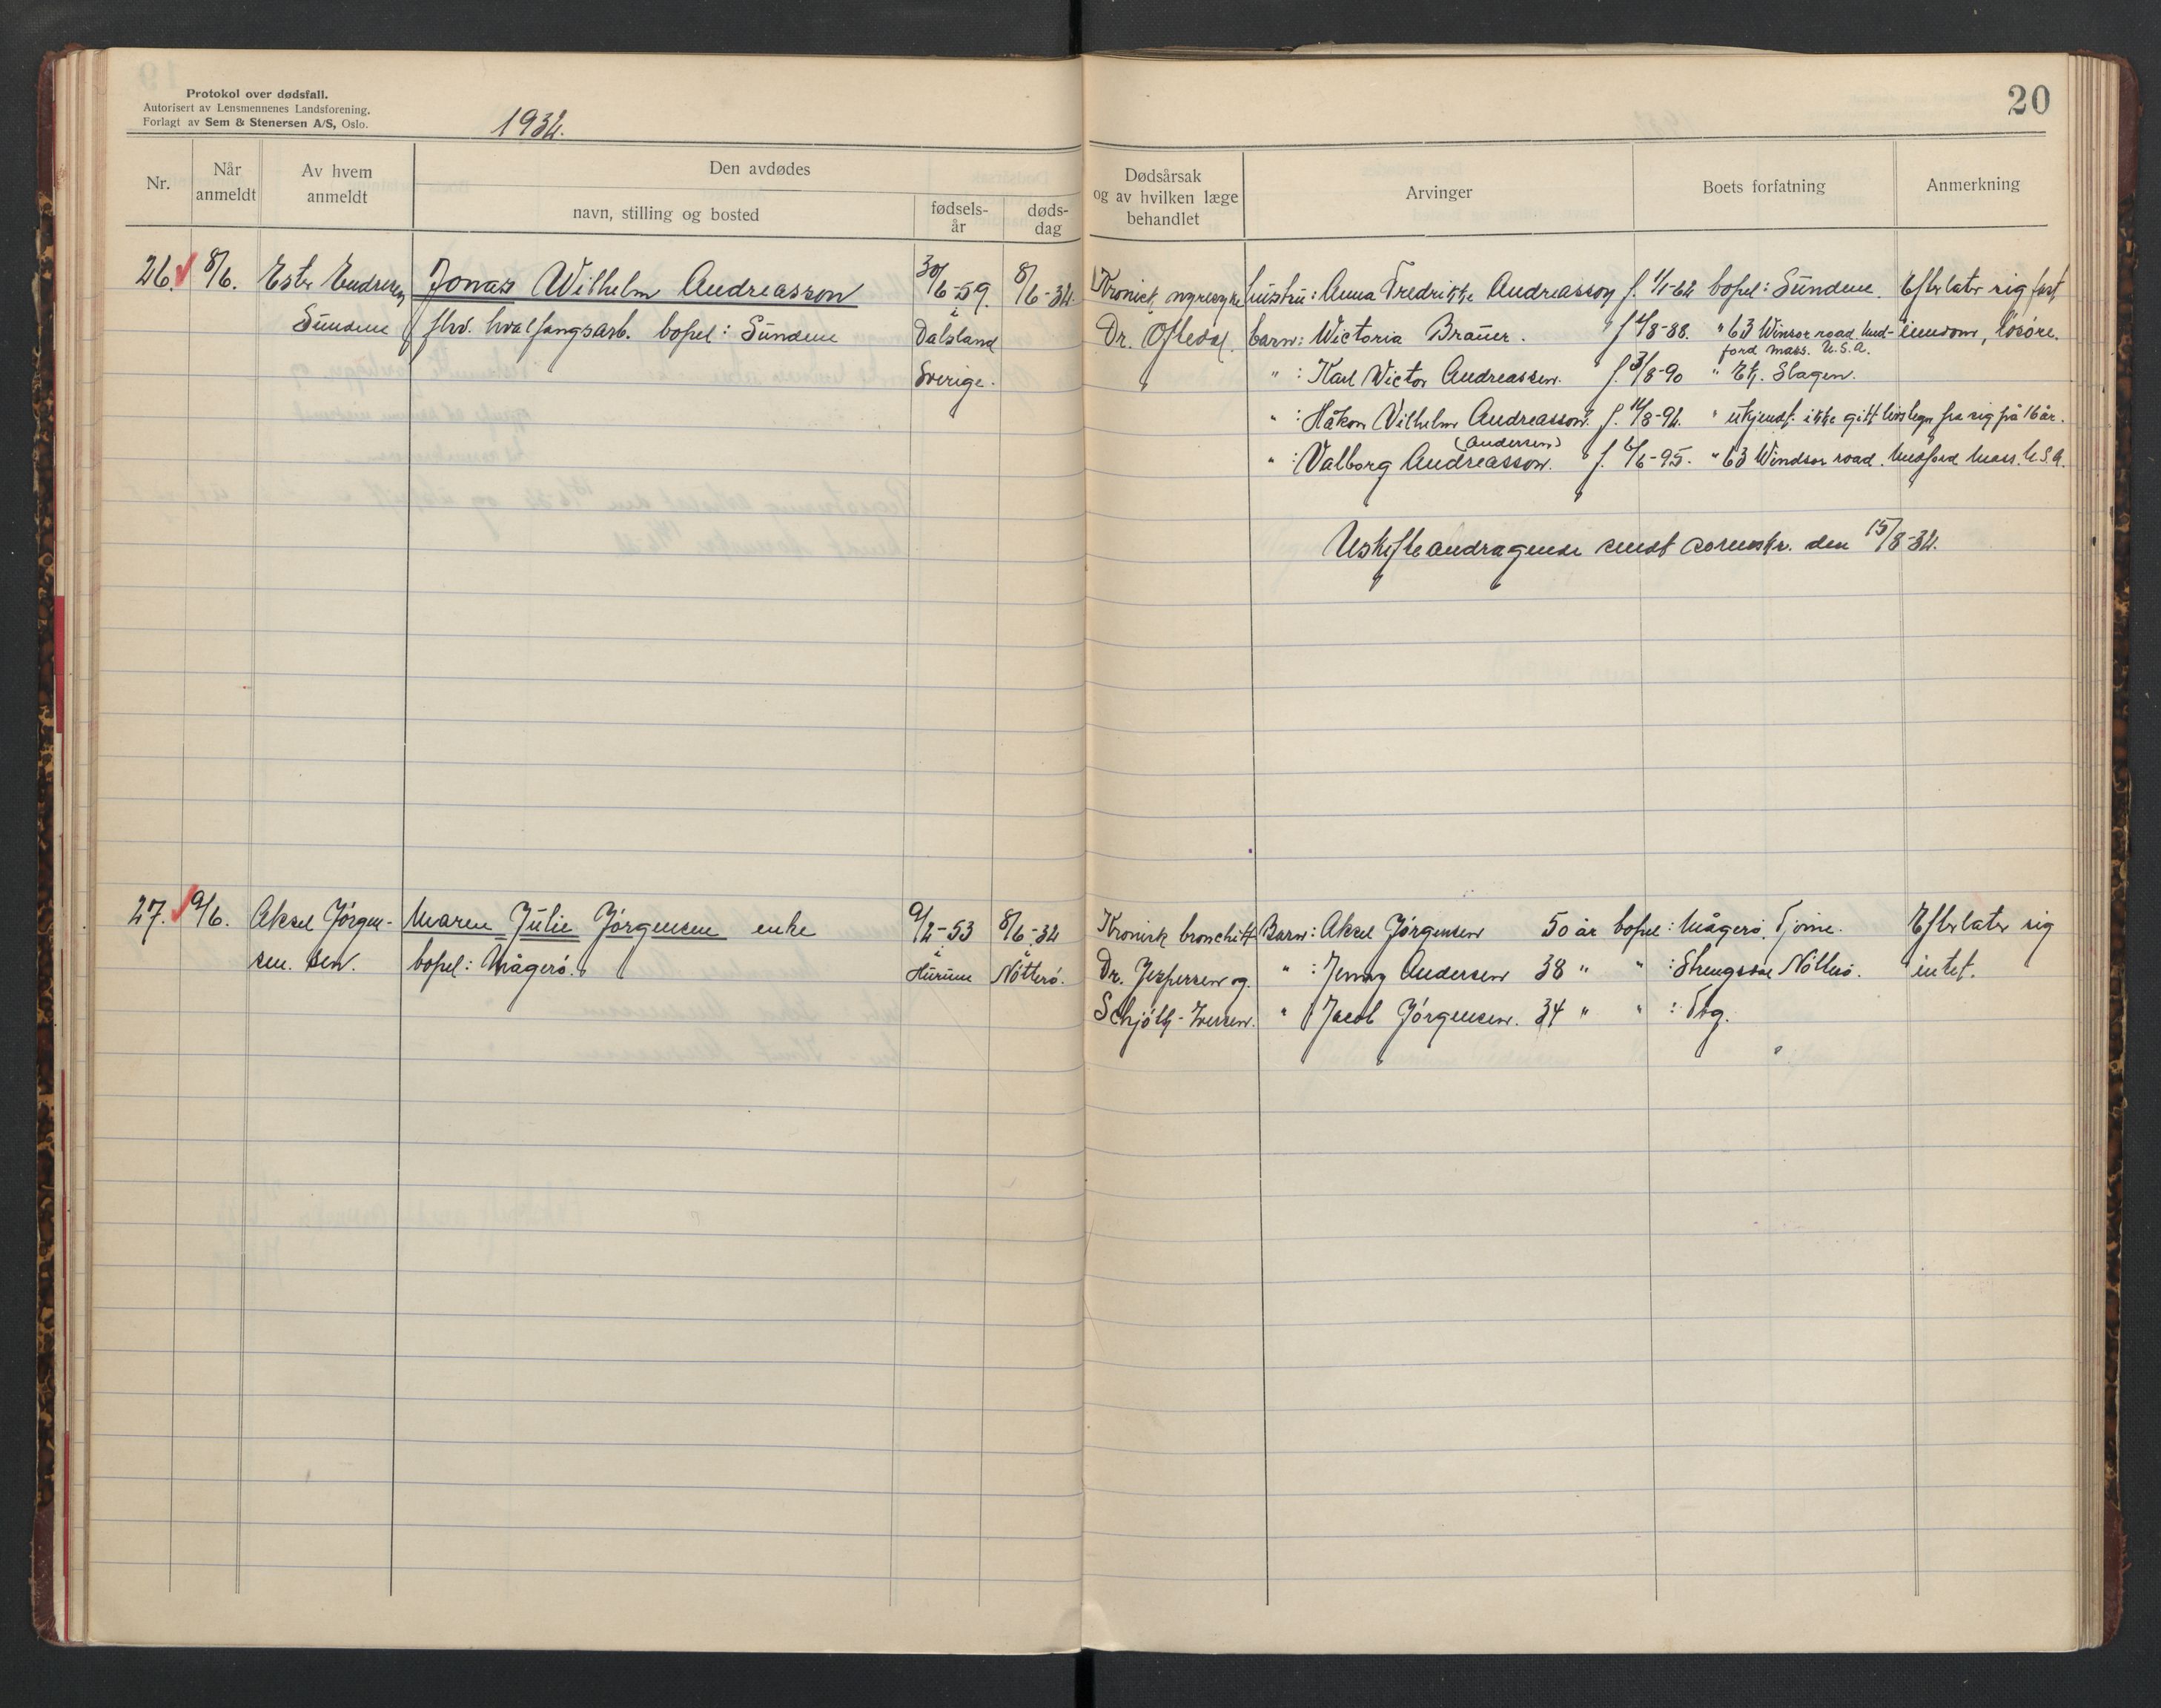 Protokol over dødsfall.
Autorisert av Lensmennenes Landsforening.
Forlagt av Sem & Stenersen A/S, Oslo.
1934.
20
Nr.
Når anmeldt
Av hvem anmeldt
Den avdødes
navn, stilling og bosted
fødsels-år
døds-dag
Dødsårsak og av hvilken læge behandlet
Arvinger
Boets forfatning
Anmerkning
26. 8/6. Ester Endresen Jonas Wilhelm Andreasson 30/6-59. 8/6-34. Kronisk nyresyke hustru: Anna Fredrikke Andreasson f. 1/1-64 bopel: Sundene. Efterlater sig fast
Sundene fhv. hvalfangsarb. bopel: Sundene i Dalsland Dr. Oftedal. barn: Wictoria Braüer. f. /8-88. " 63 Winsor road Med- eiendom, løsøre.
ford Mass. U.S.A.
Sverige. " : Karl Victor Andreassen. f. 3/8-90 " Ek. Slagen.
" : Håkon Vilhelm Andreasson. f. 14/8-92. " ukjendt. ikke gitt livstegn fra sig på 16 år.
(Andersen)
" : Valborg Andreasson. " f. 6/6-95. " 63 Windsor road. Medford Mass. U.S.A.
Uskifteandragende sendt sorenskr. den 15/8-34.
27. 9/6. Aksel Jörgen- Maren Julie Jörgensen enke 9/2-53 8/6-34 Kronisk bronchitt Barn: Aksel Jörgensen 50 år bopel: Mågerö. Tjöme. Efterlater sig
sen. Sen. bopel: Mågerö. i Hurum i Nötterö. Dr. Jespersen og " : Jenny Andersen 38 " " : Strengsdal Nötterö. intet.
Schjölt-Iversen. " Jacob Jörgensen. 34 " " : Tbg.